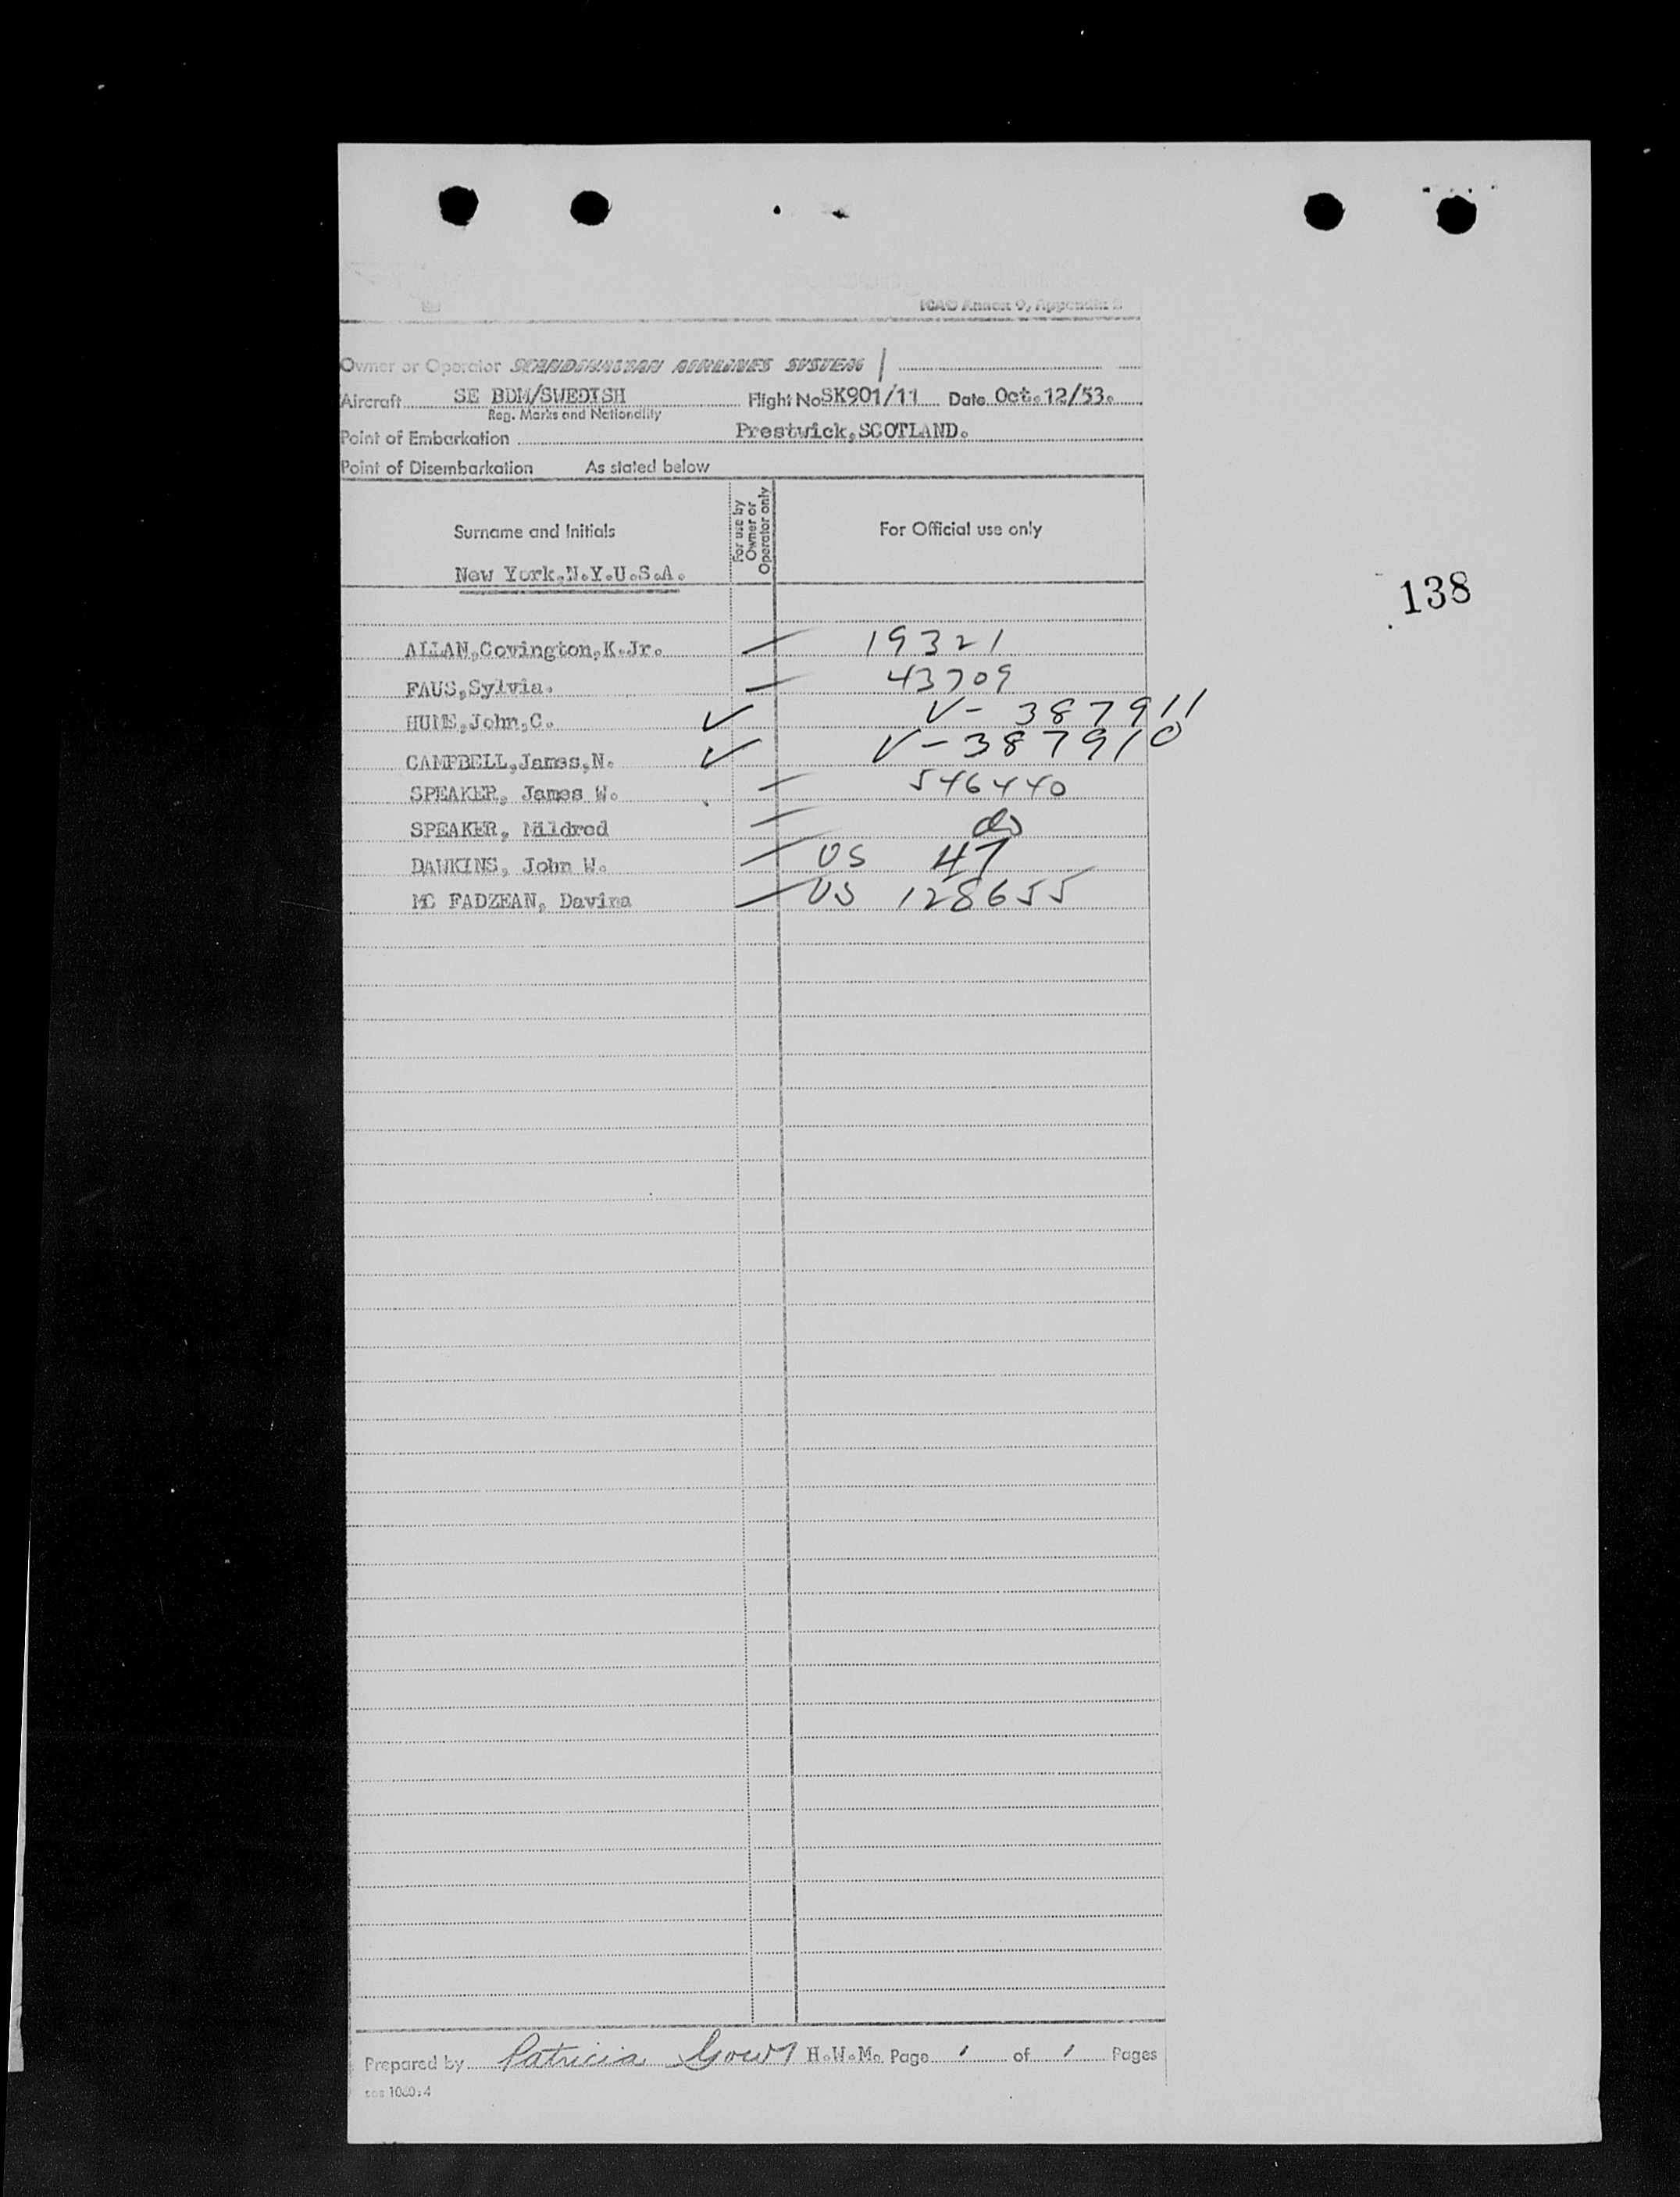 ICAO Annex 9, Appendix
Owner or Operator SCANDINAVIAN AIRLINES SYSTEM
Aircraft SE BDM/SWEDISH Flight No SK901/11 Date Oct.12/53.
Reg. Marks and Nationality
Point of Embarkation Prestwick,SCOTLAND.
Point of Disembarkation As stated below
Surname and Initials
For use by Owner or Operator only
For Official use only
New York.N.Y.U.S.A.
138
ALLAN,Covington,K.Jr. — 19321
FAUS,Sylvia. — 43709
HUME,John,C. ✓ V- 387911
CAMPBELL,James,N. ✓ V-387910
SPEAKER, James W. — 546440
SPEAKER, Mildred — do
DAWKINS, John W. — US 47
MC FADZEAN, Davina — US 128655
Prepared by Patricia H.W.M. Page 1 of 1 Pages